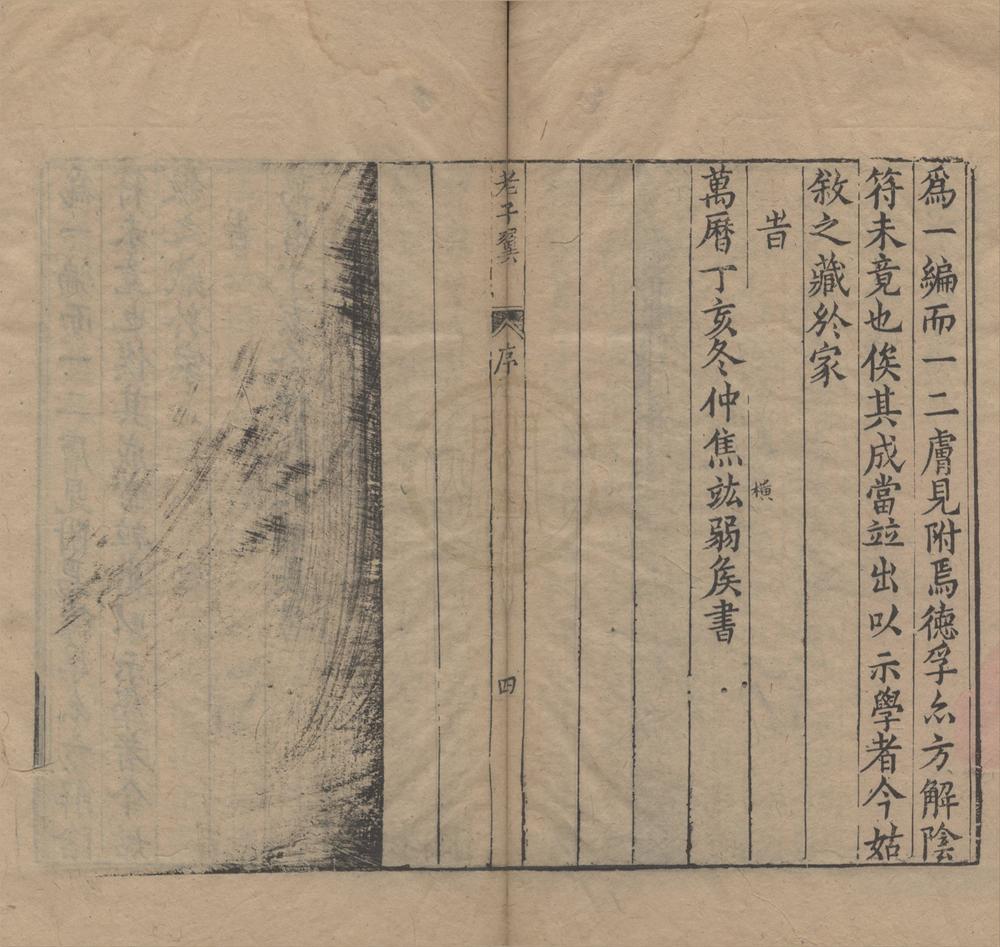 爲一編而一二膚見附焉德孚亦方解陰
符未竟也俟其成當竝出以示學者今姑
敘之藏於家
旹
橫
萬曆丁亥冬仲焦竑弱侯書
老子翼
序
四